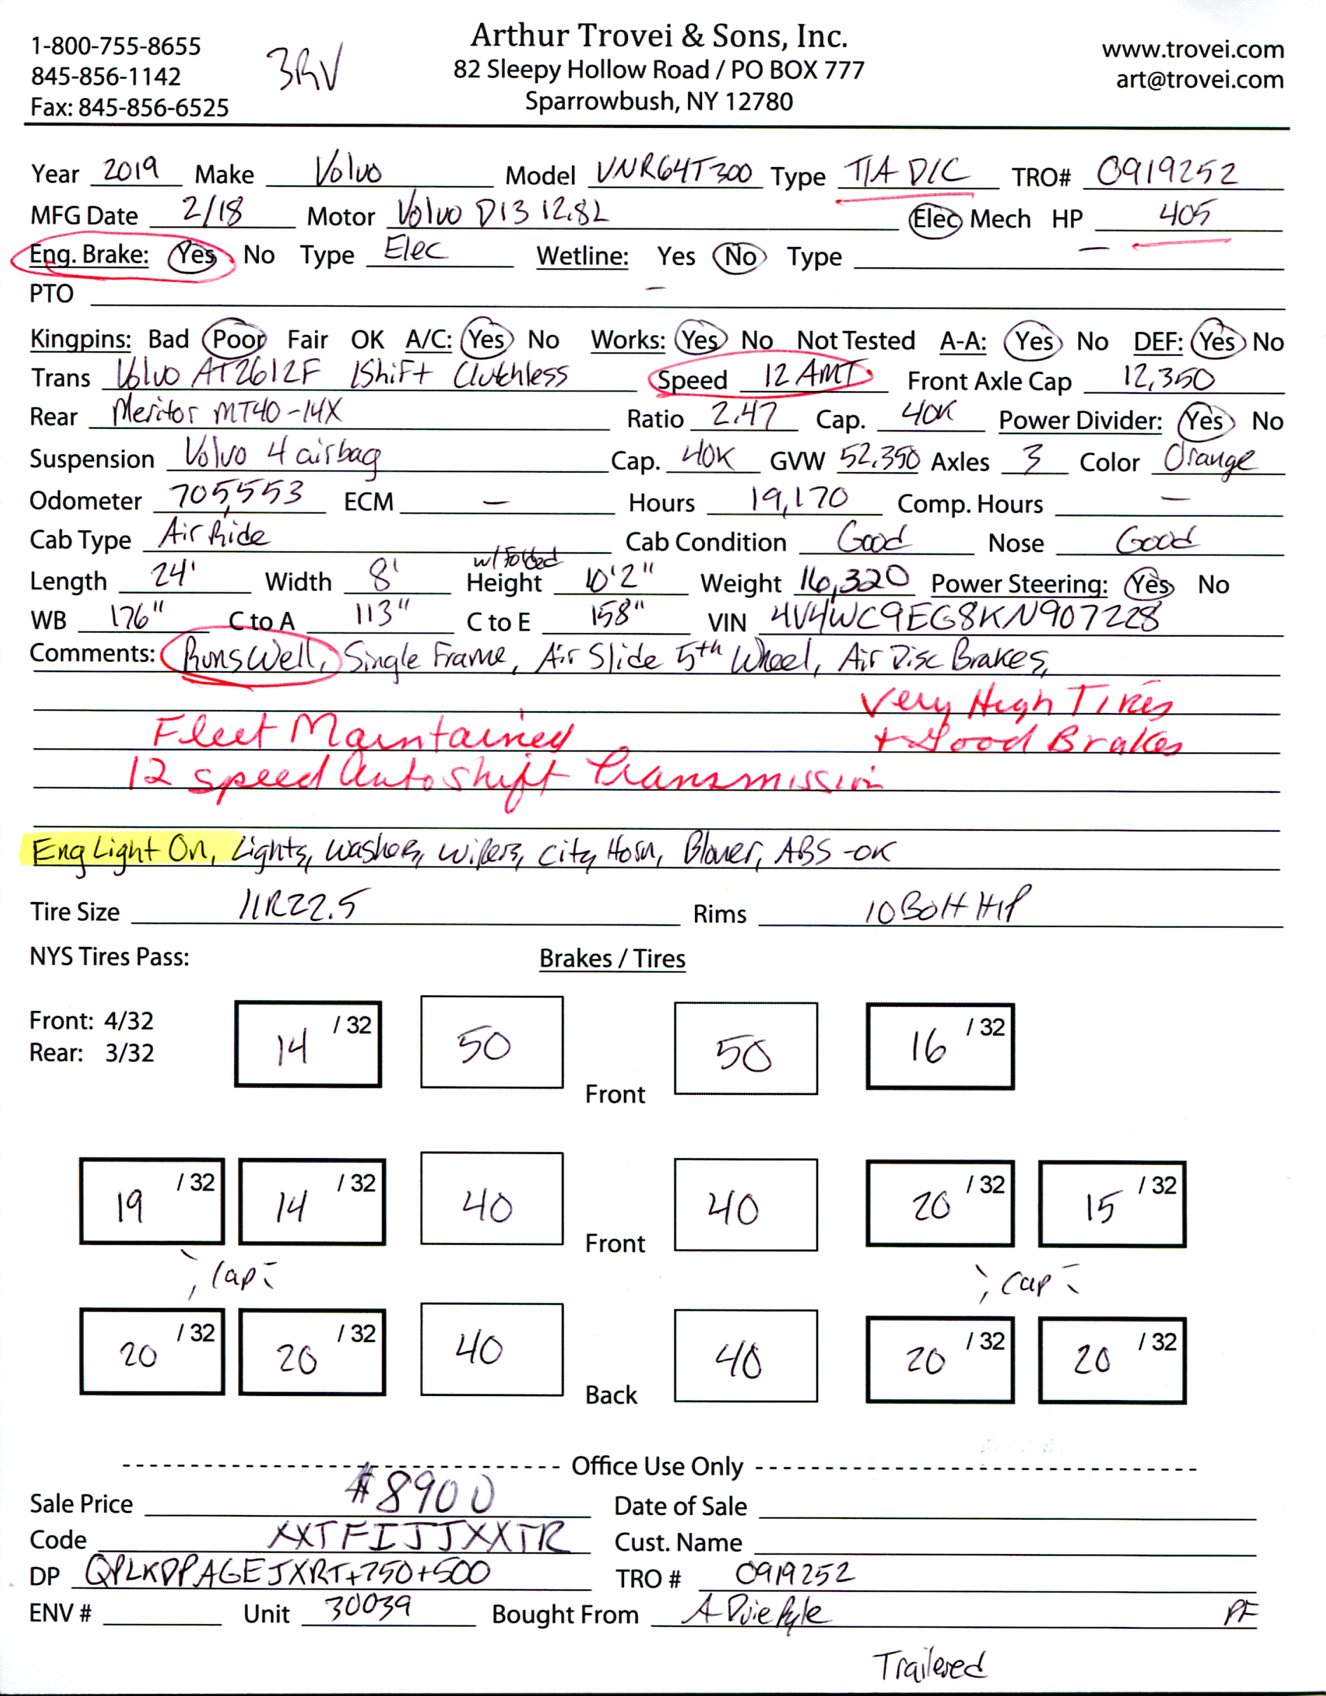 1-800-755-8655
845-856-1142
Fax: 845-856-6525
3RV
Arthur Trovei & Sons, Inc.
82 Sleepy Hollow Road / PO BOX 777
Sparrowbush, NY 12780
www.trovei.com
art@trovei.com
Year 2019 Make Volvo Model VNR64T300 Type T/A D/C TRO# 0919252
MFG Date 2/18 Motor Volvo D13 12.8L Elec Mech HP 405
Eng. Brake: Yes No Type Elec Wetline: Yes No Type —
PTO —
Kingpins: Bad Poor Fair OK A/C: Yes No Works: Yes No Not Tested A-A: Yes No DEF: Yes No
Trans Volvo AT2612F IShift Clutchless Speed 12 AMT Front Axle Cap 12,350
Rear Meritor MT40-14X Ratio 2.47 Cap. 40K Power Divider: Yes No
Suspension Volvo 4 airbag Cap. 40K GVW 52,350 Axles 3 Color Orange
Odometer 705,553 ECM — Hours 19,170 Comp. Hours —
Cab Type Air Ride Cab Condition Good Nose Good
w/ Folded
Length 24' Width 8' Height 10'2" Weight 16,320 Power Steering: Yes No
WB 176" C to A 113" C to E 158" VIN 4V4WC9EG8KN907228
Comments: Runs Well, Single Frame, Air Slide 5th Wheel, Air Disc Brakes,
Very High Tires
Fleet Maintained + Good Brakes
12 speed Autoshift Transmission
Eng Light On, Lights, Washers, Wipers, City Horn, Blower, ABS -OK
Tire Size 11R22.5 Rims 10 Bolt H/P
NYS Tires Pass: Brakes / Tires
Front: 4/32
Rear: 3/32
14 / 32 50 Front 50 16 / 32
19 / 32 14 / 32 40 Front 40 20 / 32 15 / 32
Cap Cap
20 / 32 20 / 32 40 Back 40 20 / 32 20 / 32
Office Use Only
Sale Price $8900 Date of Sale
Code XXTFIJJXXTR Cust. Name
DP QPLKDPAGEJXRT+750+500 TRO # 0919252
ENV # Unit 30039 Bought From A Duie Pyle PF
Trailered